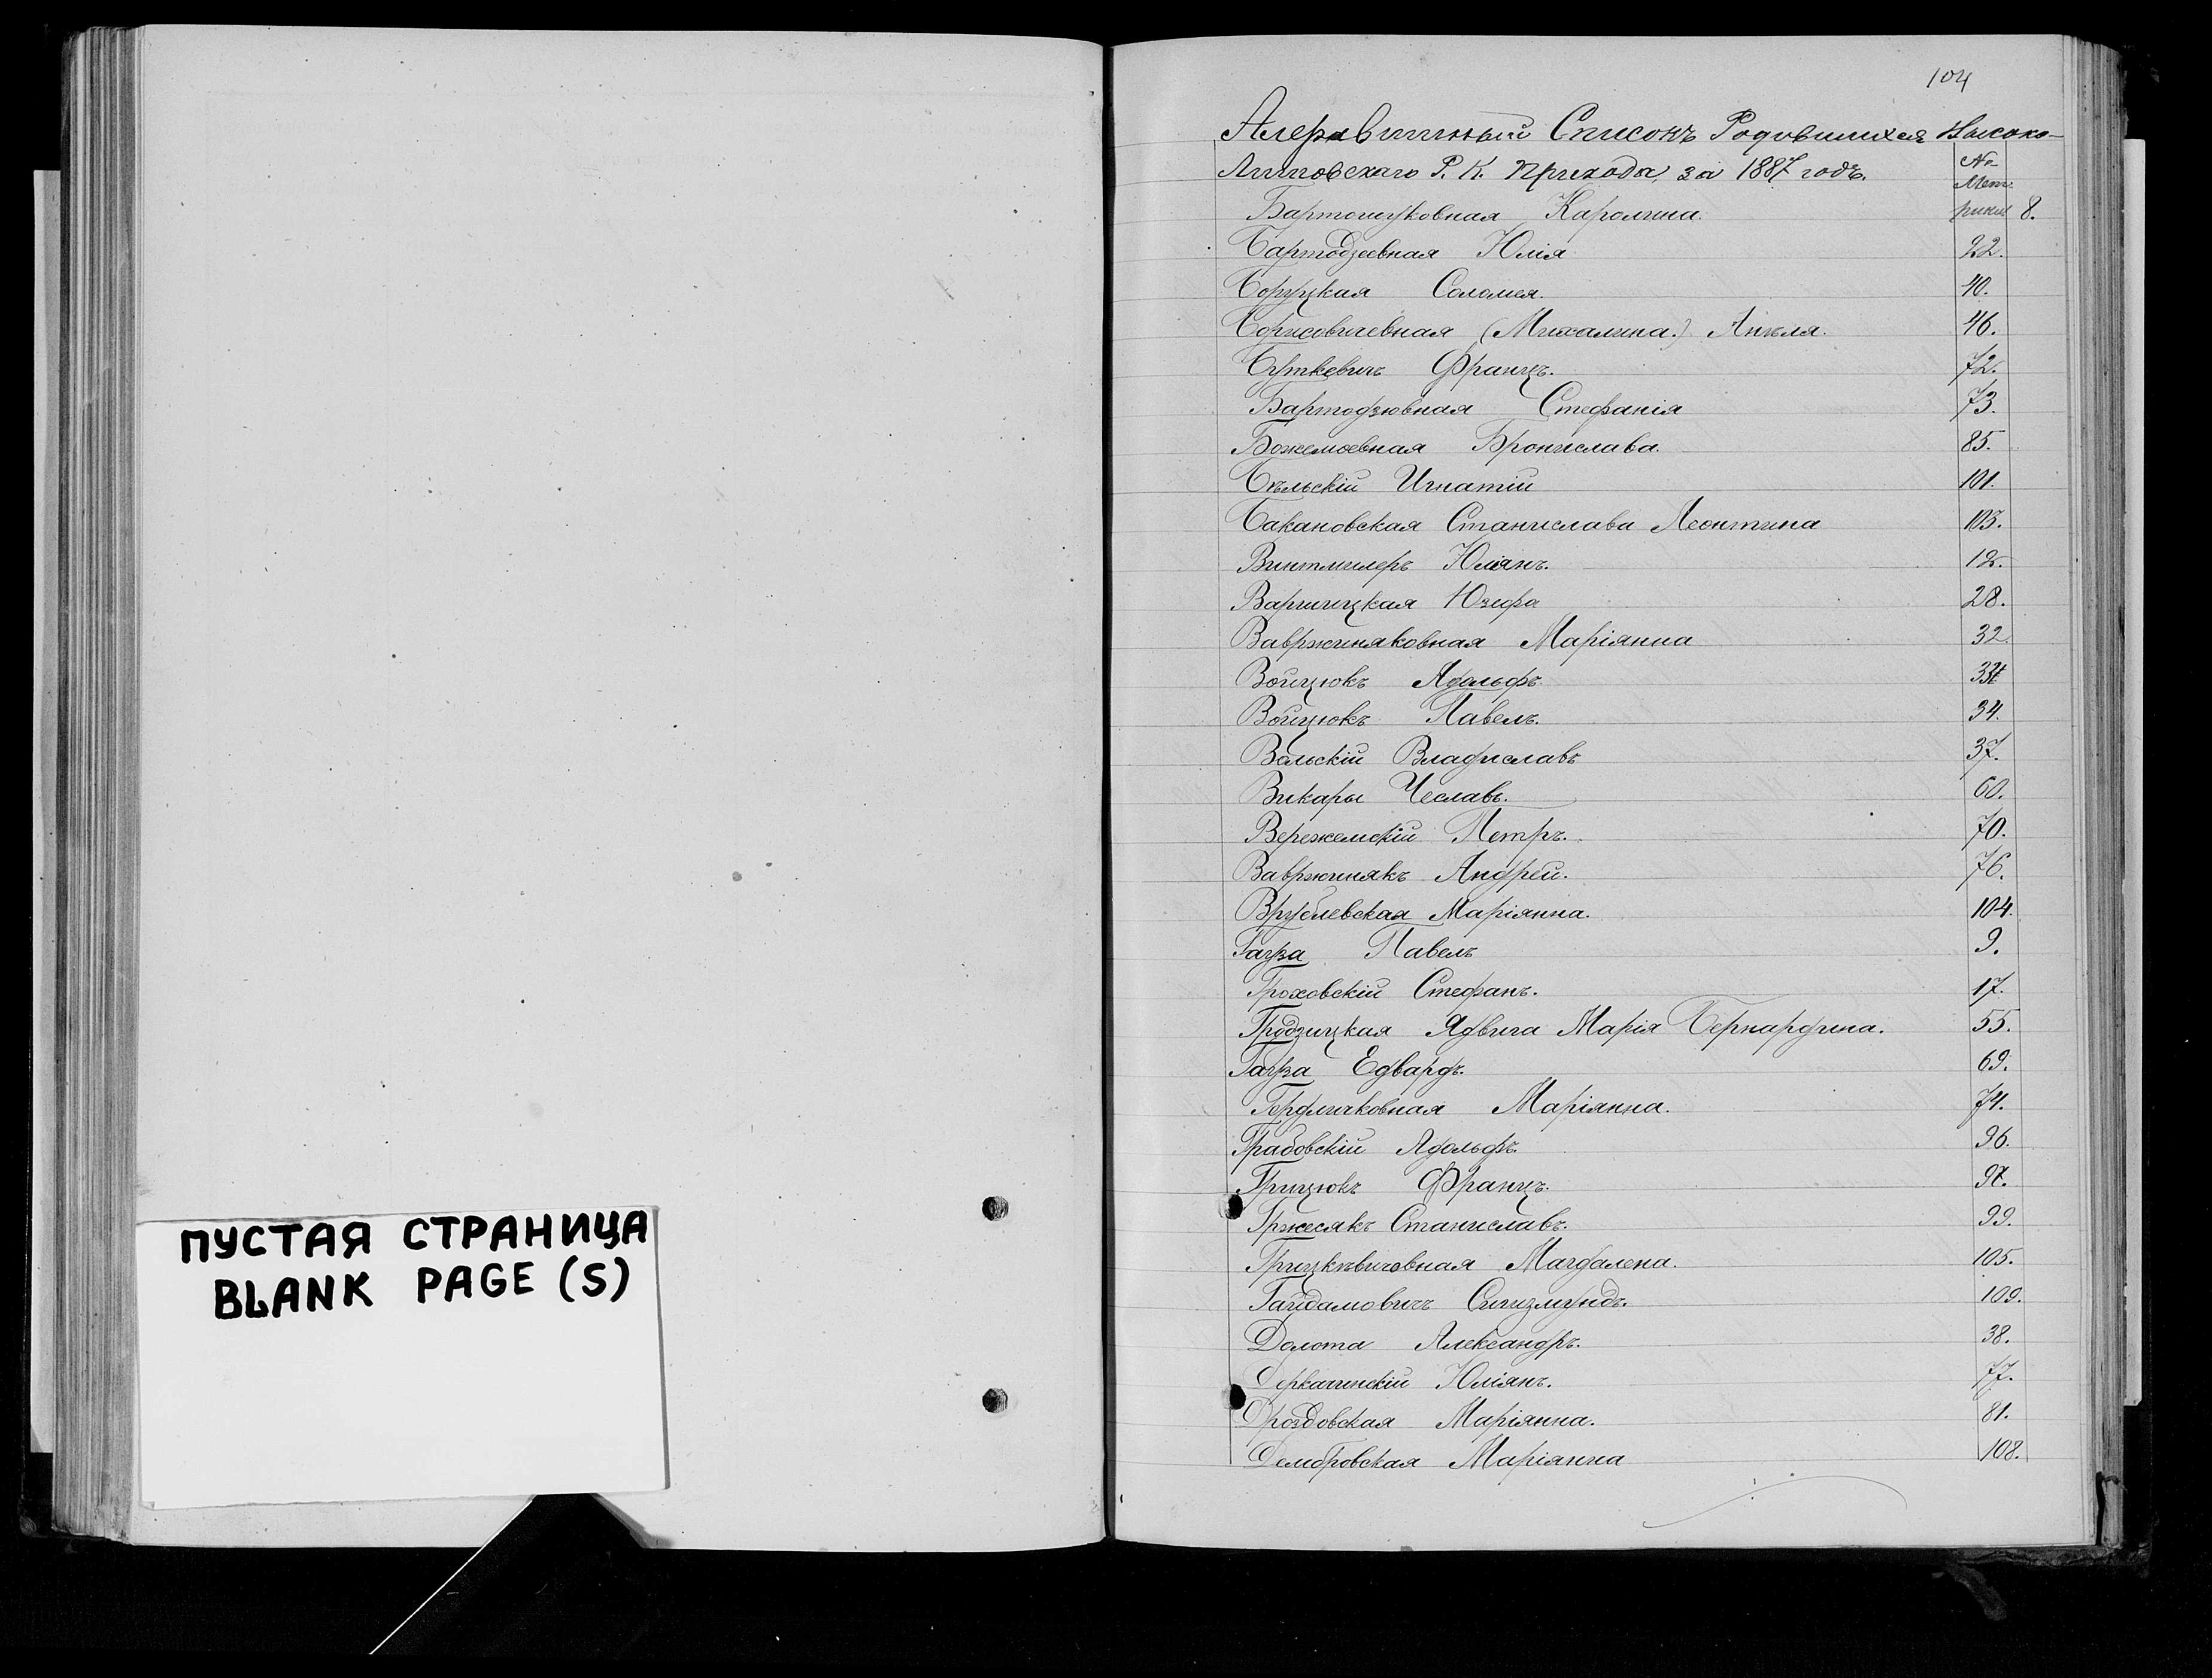 ПУСТАЯ СТРАНИЦА
BLANK PAGE (S)
104
Алфавитный Списокъ Родившихся Высоко-
Литовскаго Р. К. Прихода за 1887 годъ. № Мет-
Бартошуковная Каролина. рики 8.
Бартодзеевная Юлія 22.
Боруцкая Саломея. 40.
Борисовичевная (Михалина.) Анѣля. 46.
Буткевичъ Францъ. 72.
Бартодзювная Стефанія 73.
Божемоевная Бронислава. 85.
Бѣльскій Игнатій 101.
Бакановская Станислава Леонтина 103.
Винтмилеръ Юліянъ. 12.
Варшицкая Юзефа 28.
Вавржиняковная Маріянна 32.
Войцюкъ Адольфъ. 33
Войцюкъ Павелъ. 34.
Вольскій Владиславъ 37.
Викары Чеславъ. 60.
Вережемскій Петръ. 70.
Вавржинякъ Андрей. 76.
Врублевская Маріянна. 104.
Гауза Павелъ 9.
Гроховскій Стефанъ. 17.
Гродзицкая Ядвига Марія Бернардина. 55.
Гауза Едвардъ. 69.
Маріянна. 74.
Грабовскій Адольфъ. 96.
Грицюкъ Францъ. 97.
Гржесякъ Станиславъ. 99.
Грицкѣвичовная Магдалена. 105.
Гайдамовичъ Сигизмундъ. 109.
Долота Александръ. 38.
Деркачинскій Юліянъ. 77.
Дроздовская Маріянна. 81.
Дембровская Маріянна 108.